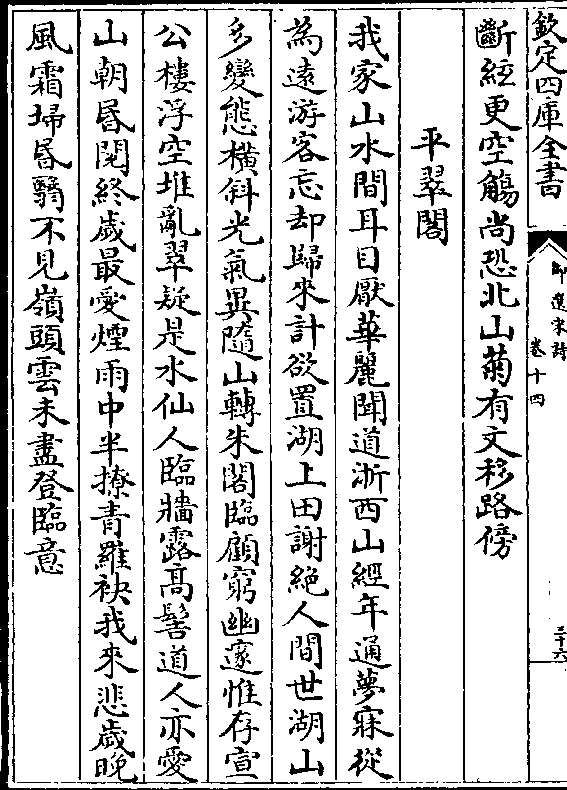 欽定四庫全書
御選宋詩
卷十四
三十六
斷絃更空觴尚恐北山菊有文移路傍
平翠閣
我家山水間耳目厭華麗聞道浙西山經年通夢寐從
為遠游客忘却歸來計欲置湖上田謝絶人間世湖山
多變態橫斜光氣異隨山轉朱閣臨顧窮幽邃惟存宣
公樓浮空堆亂翠疑是水仙人臨牆露髙髻道人亦愛
山朝昏閱終歲最愛煙雨中半撩青羅袂我來悲歲晚
風霜埽昏翳不見嶺頭雲未盡登臨意